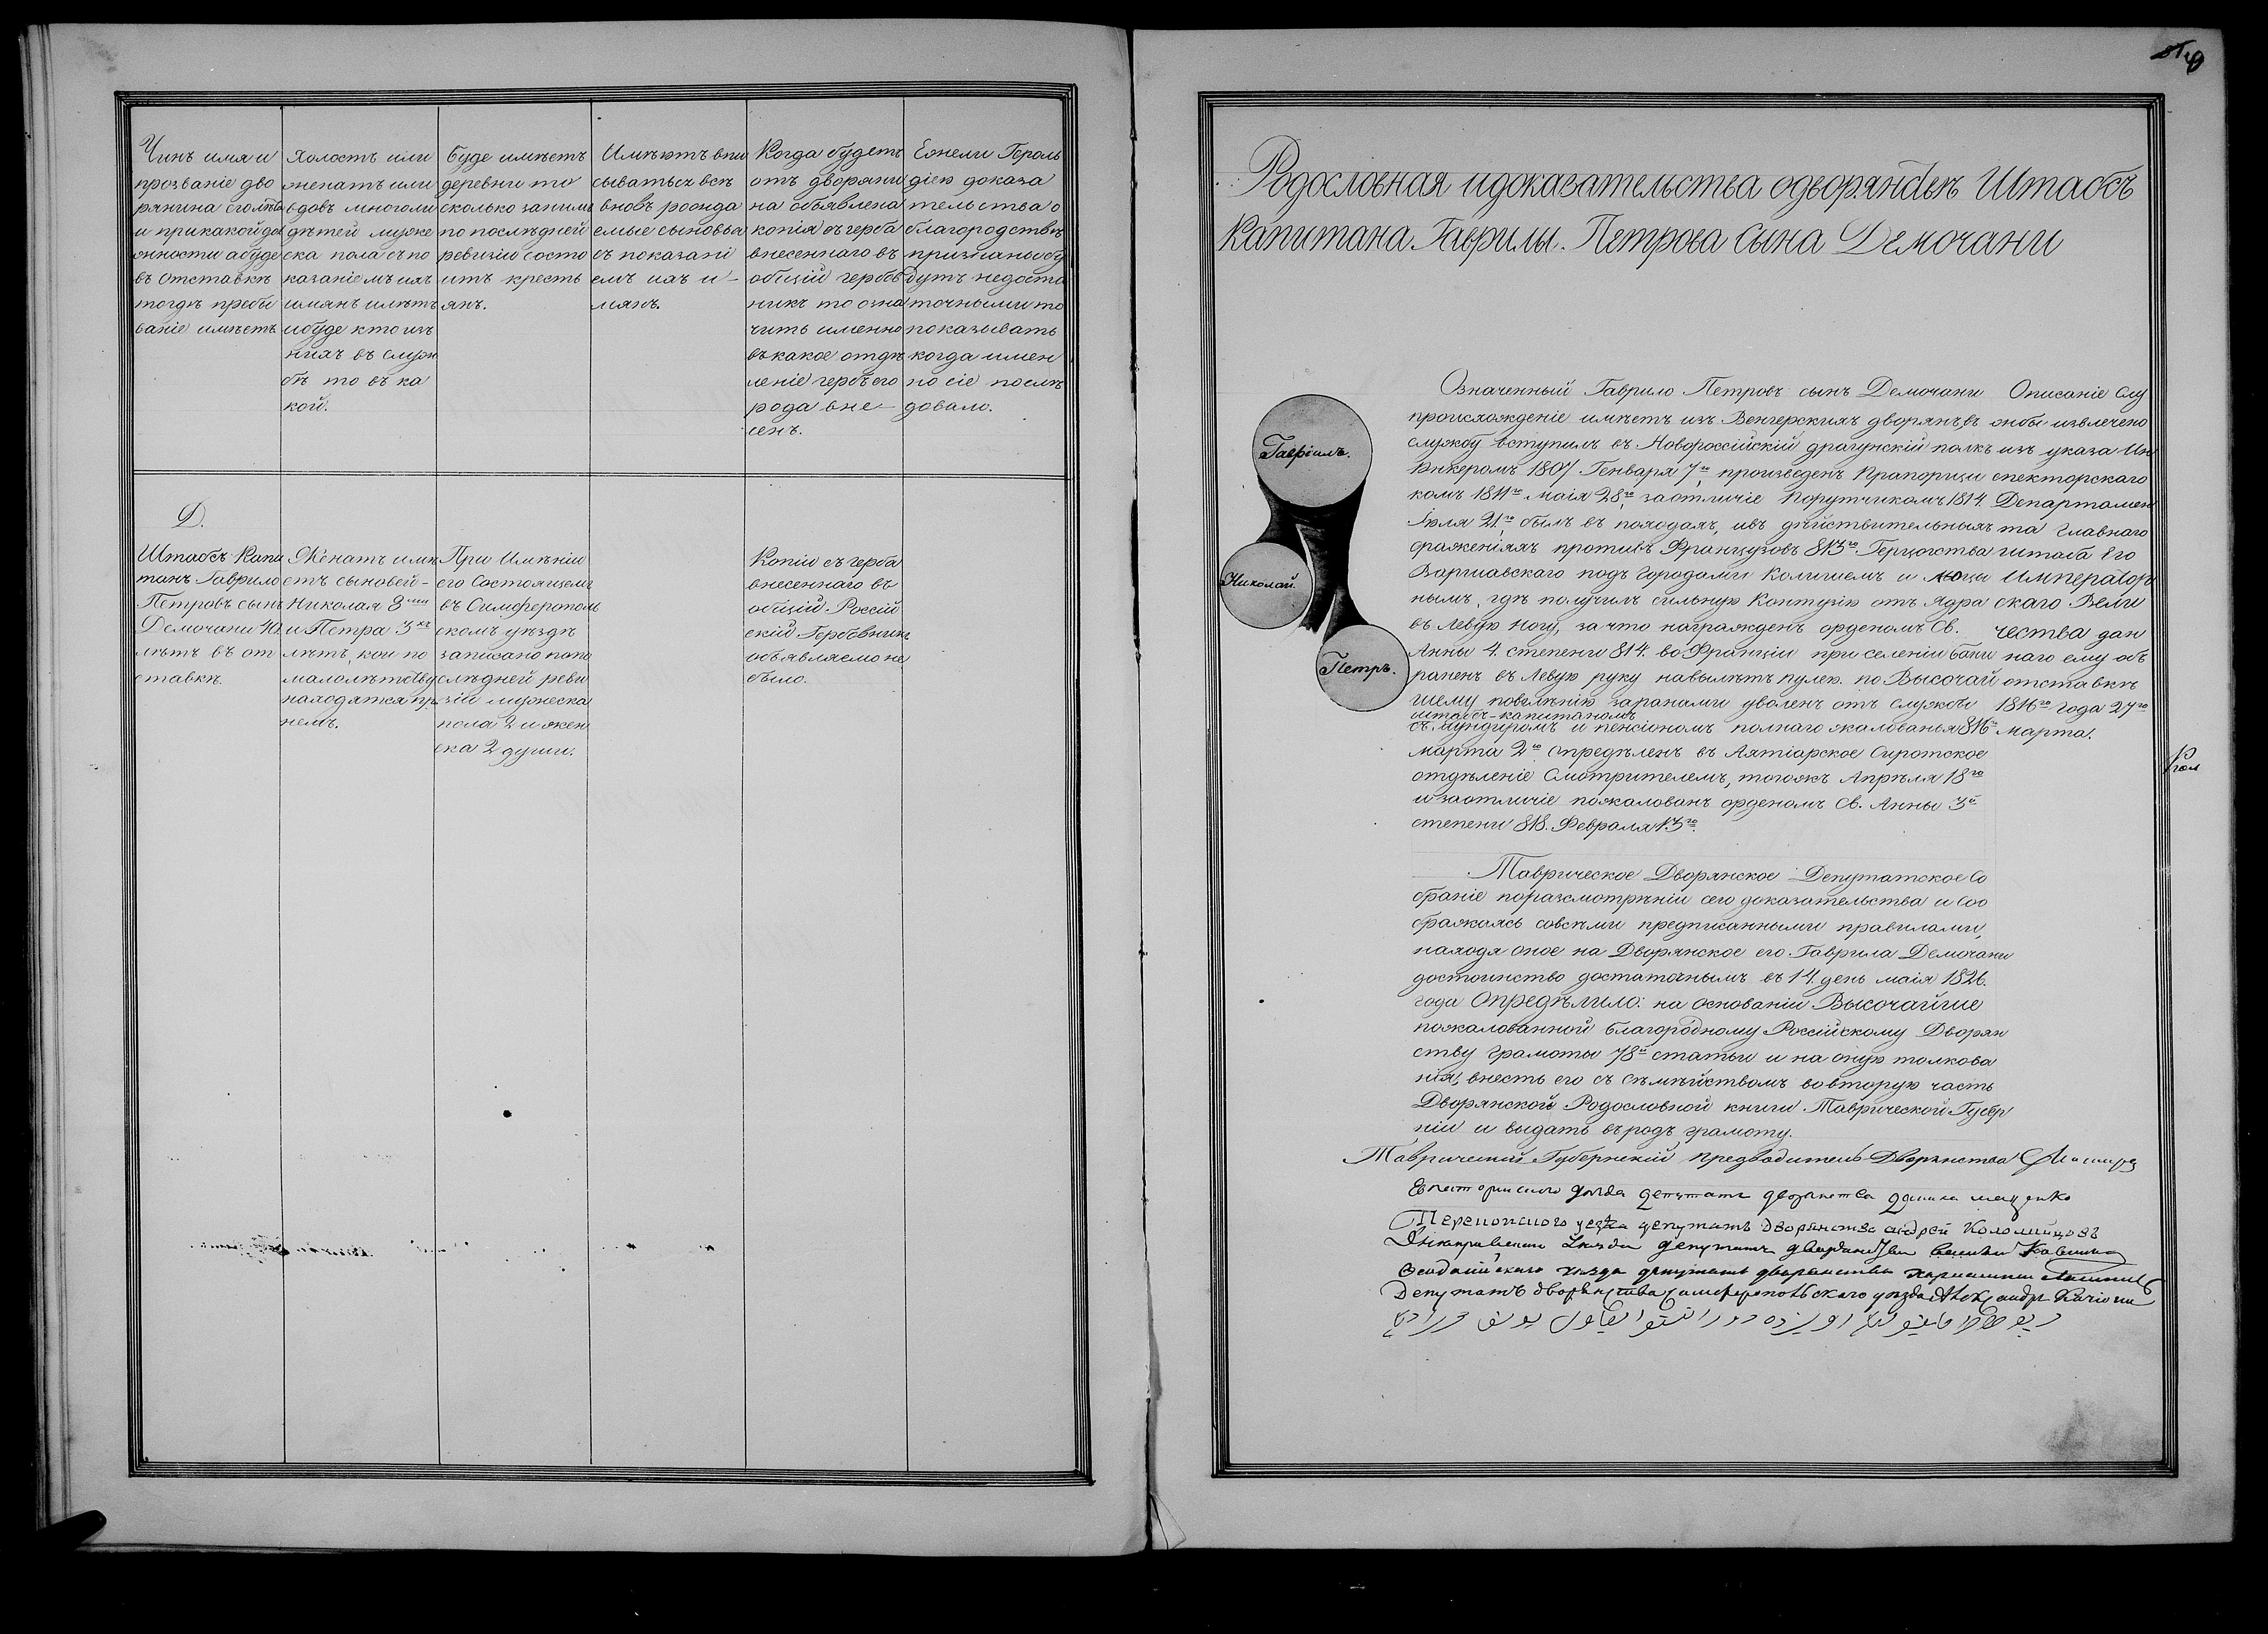 Чинъ имя и
прозваніе дво
рянина его лѣта
и при какой дол
жности а буде
въ отставкѣ
то гдѣ пребы
ваніе имѣетъ
Холостъ или
женатъ или
вдовъ много ли
дѣтей муже
ска пола съ по
казаніемъ ихъ
имянъ и лѣтъ
и буде кто изъ
нихъ въ служ
бѣ то въ ка
кой.
Буде имѣетъ
деревни то
сколько за нимъ
по послѣдней
ревизіи состо
итъ кресть
янъ.
Имѣютъ впи
сываться всѣ
вновь рожда
емые сыновья
съ показані
емъ ихъ и-
мянъ.
Когда будетъ
отъ дворяни
на объявлена
копія съ герба
внесеннаго въ
общій гербов
никъ то озна
чить именно
въ какое отдѣ
леніе гербъ его
рода вне-
сенъ.
Ежели Героль
діею доказа
тельства о
благородствѣ
признаны бу
дутъ недоста
точными то
показывать
когда имен
но сіе послѣ
довало.
Д.
Штабсъ Капи
танъ Гаврило
Петровъ сынъ
Демочани 40.
лѣтъ въ от
ставкѣ.
Женатъ имѣ
етъ сыновей-
Николая 8ми
и Петра 3хъ
лѣтъ, кои по
малолѣтству
находятся при
немъ.
При Имѣніи
его Состоящемъ
въ Симферополь
скомъ уѣздѣ
записано по по
слѣдней реви
зіи мужеска
пола 2 и жен
ска 2 души.
Копіи съ герба
внесеннаго въ
общій Россій
скій Гербовникъ
объявляемо не
было.
Родословная и доказательства о дворянствѣ Штабсъ
Капитана. Гаврилы. Петрова Сына Демочани
Гавріилъ.
Николай.
Петръ.
Означенный Гаврило Петровъ сынъ Демочани
происхожденіе имѣетъ изъ Венгерскихъ дворянъ въ
службу вступилъ въ Новороссійскій драгунскій полкъ
Юнкеромъ 1807 Генваря 7го, произведенъ Прапорщи
комъ 1811го маія 28го, за отличіе Порутчикомъ 1814.
Іюля 21го, былъ въ походахъ, и въ дѣйствительныхъ
сраженіяхъ противъ Французовъ 813го Герцогства
Варшавскаго подъ Городами Колишемъ и
нымъ, гдѣ получилъ сильную Контузію отъ Ядра
въ Левую ногу, за что награжденъ орденомъ Св.
Анны 4. степени 814. во Франціи при селеніи
раненъ въ Левую руку навылетъ пулею. по Высочай
шему повелѣнію за ранами уволенъ отъ службы
штабсъ-капитаномъ
съ мундиромъ и пенсіономъ полнаго жалованья 816го
марта 2го опредѣленъ въ Ахтіарское Сиротское
отдѣленіе Смотрителемъ, того жъ Апрѣля 18го
и за отличіе пожалованъ орденомъ Св. Анны 3й
степени 818. Февраля 13го.
Описаніе Слу
жбы извлечено
изъ указа Ин
спекторскаго
Департамен
та Главнаго
штаба Его
Император
скаго Вели
чества дан
наго ему объ
отставкѣ
1816го года 27го
марта.
Таврическое Дворянское Депутатское Со
браніе по разсмотрѣніи сего доказательства и Соо
бражаясь со всѣми предписанными правилами,
находя оное на Дворянское его Гаврила Демочани
достоинство достаточнымъ въ 14. день маія 1826.
года Опредѣлило: на основаніи Высочайше
пожалованной благородному Россійскому Дворян
ству Грамоты 78й статьи и на оную толкова
нія, внесть его съ сѣмѣйствомъ во вторую часть
Дворянской Родословной книги Таврической Губер
ніи и выдать въ родъ грамоту.
Таврическій Губернскій Предводитель Дворянства
уѣзда депутатъ дворянства
Перекопского уезда депутатъ дворянства андрей Коломийцовъ
уезда депутатъ дворянства
Феодосійскаго уезда депутатъ дворянства
Депутатъ дворянства Симферопольскаго уезда Александръ